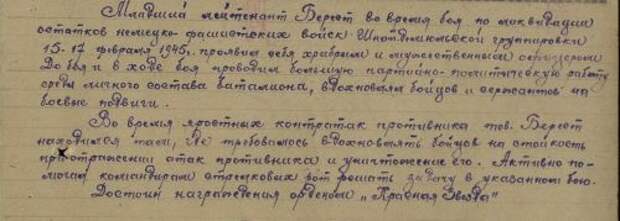 Младший лейтенант Берест во время боя по ликвидации
остатков немецко-фашистских войск Шнайдмюльской группировки
15-17 февраля 1945г. проявил себя храбрым и мужественным офицером
До боя и в ходе боя проводил большую партийно-политическую работу
среди личного состава баталиона, вдохновлял бойцов и сержантов на
боевые подвиги.
Во время яростных контратак противника тов. Берест
находился там, где требовалось вдохновлять бойцов на стойкость
при отражении атак противника и уничтожение его. Активно по-
могал командирам стрелковых рот решать задачу в указанном бою.
Достоин награждения орденом „Красная Звезда"